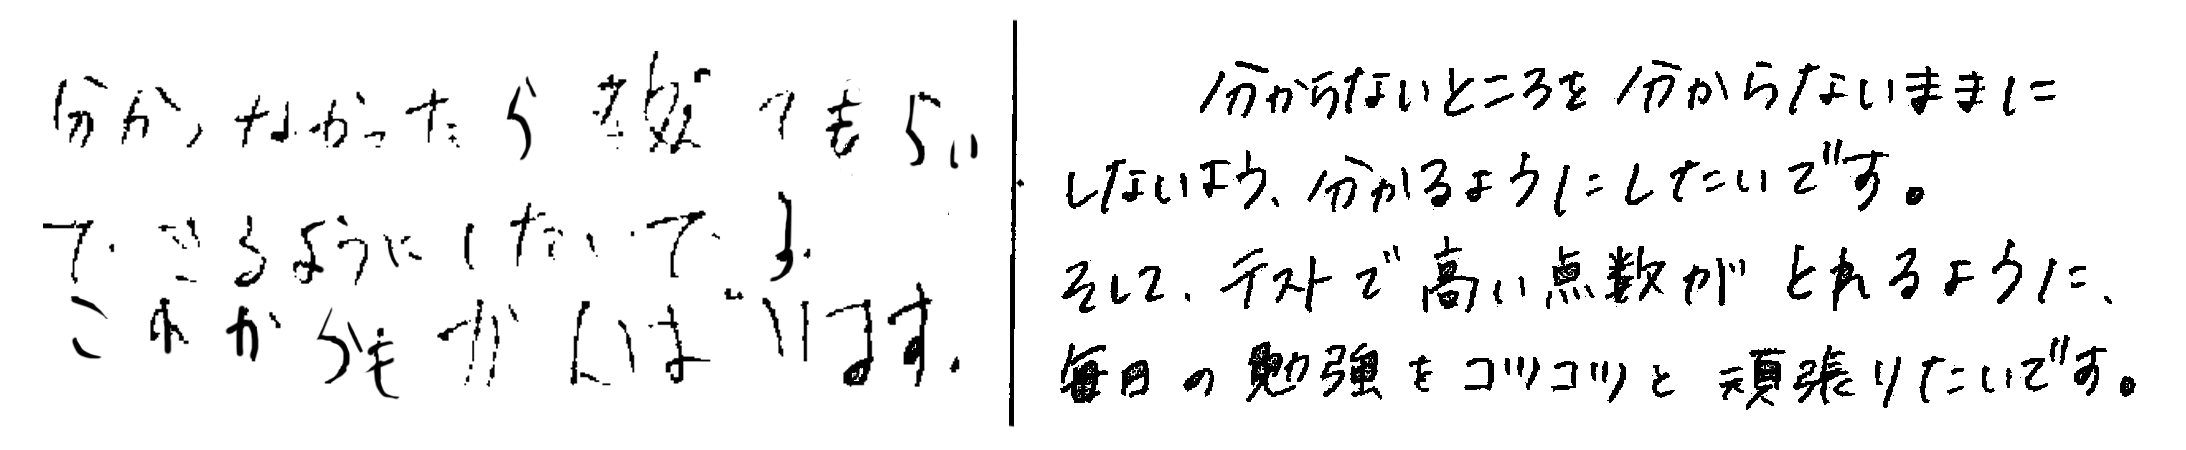 分かんなかったら教えてもらい
できるようにしたいです.
これからもがんばります.
分からないところを分からないままに
しないよう、分かるようにしたいです。
そして、テストで高い点数がとれるように、
毎日の勉強をコツコツと頑張りたいです。